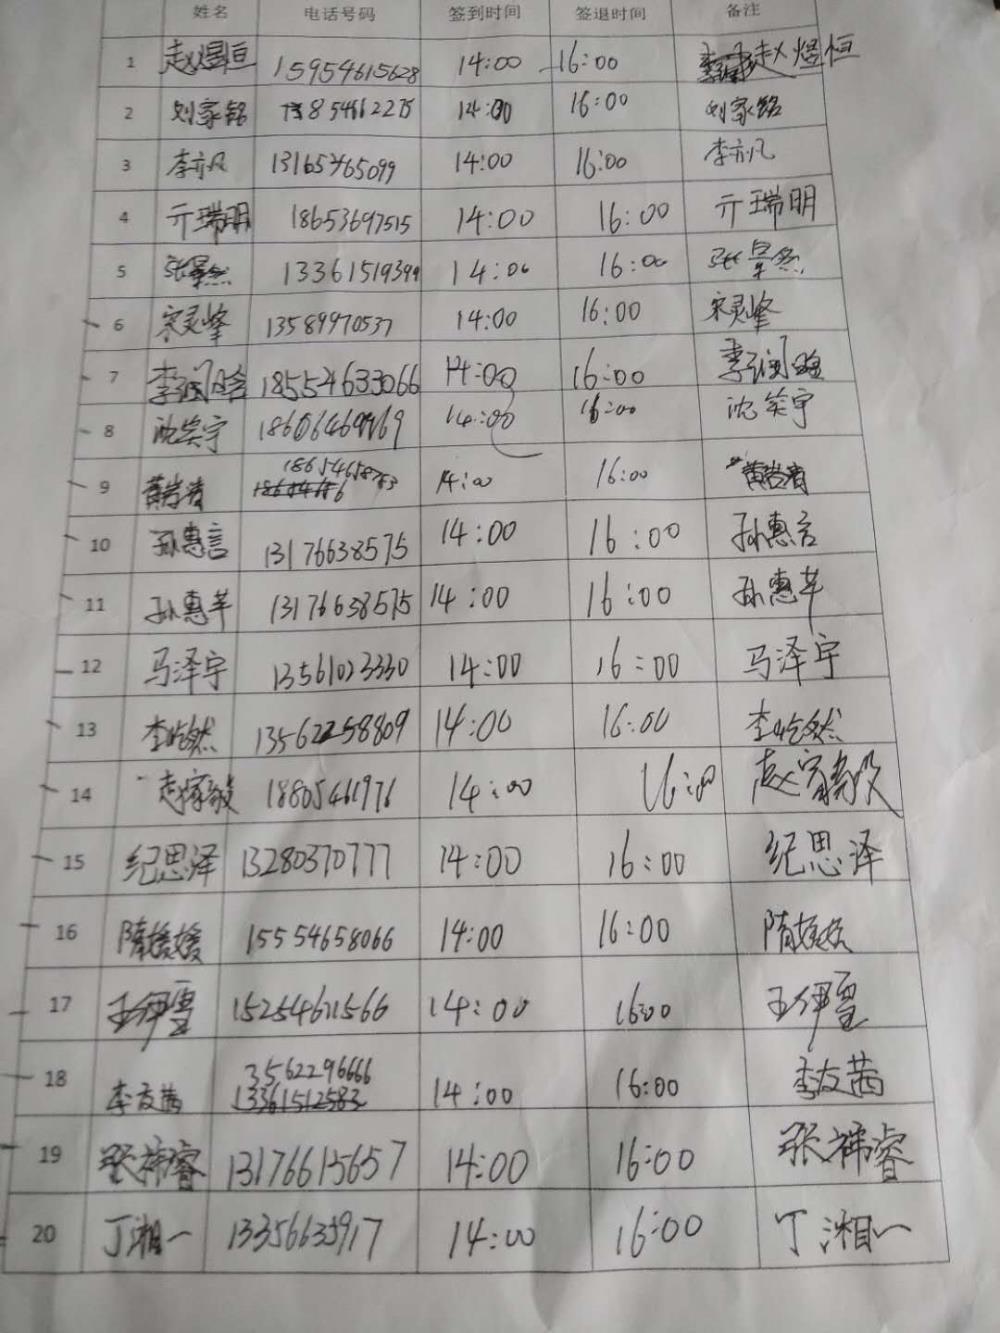 姓名 电话号码 签到时间 签退时间 备注
1 赵煜恒 15954615628 14:00 16:00 赵煜恒
2 刘家铭 14:00 16:00 刘家铭
3 李亦凡 13165465099 14:00 16:00 李亦凡
4 亓瑞明 18653697515 14:00 16:00 亓瑞明
5 张景然 13361519399 14:00 16:00 张景然
6 宋灵峰 13589970537 14:00 16:00 宋灵峰
7 李润晗 18554633066 14:00 16:00 李润晗
8 沈笑宇 14:00 16:00 沈笑宇
9 黄岩清 14:00 16:00 黄岩清
10 孙惠言 13176638575 14:00 16:00 孙惠言
11 孙惠芊 13176638575 14:00 16:00 孙惠芊
12 马泽宇 13561023330 14:00 16:00 马泽宇
13 李屹然 13562258809 14:00 16:00 李屹然
14 18805461976 14:00 16:00
15 纪思泽 13280370777 14:00 16:00 纪思泽
16 隋媛媛 15554658066 14:00 16:00 隋媛媛
17 王伊雪 15254611566 14:00 16:00 王伊雪
3562296666
18 李友茜 13361512583 14:00 16:00 李友茜
19 张祎睿 13176615657 14:00 16:00 张祎睿
20 丁湘一 13356635917 14:00 16:00 丁湘一